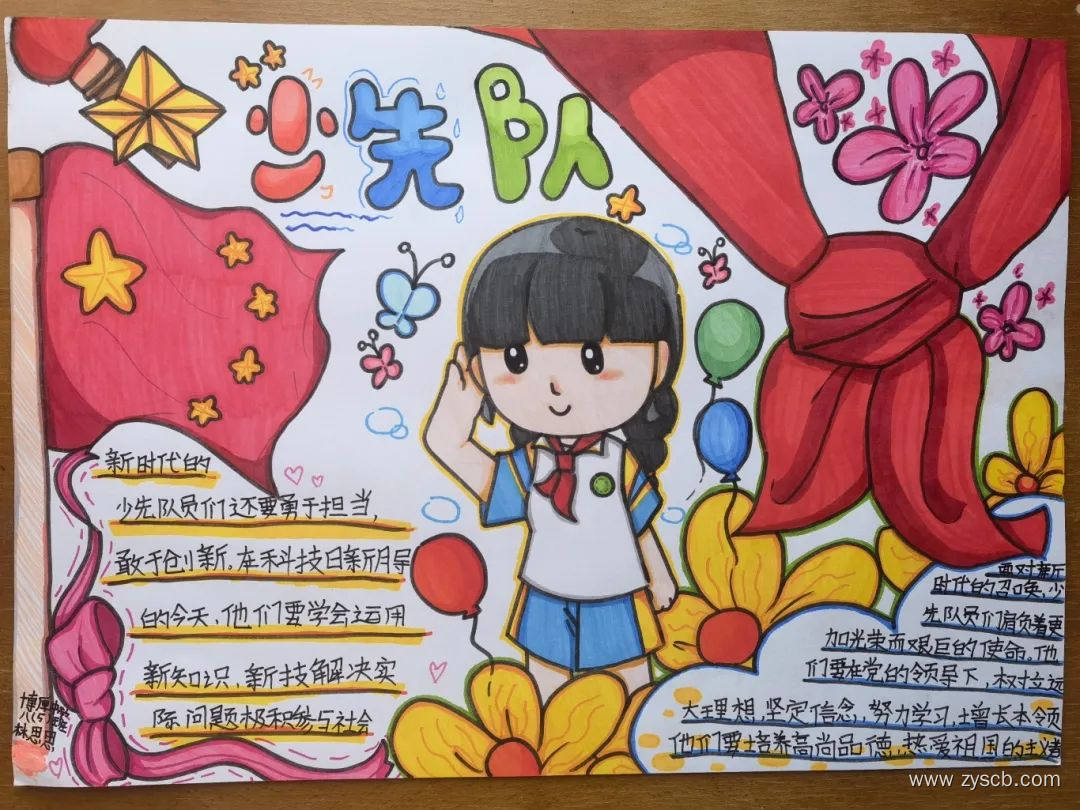 少先队
新时代的
少先队员们还要勇于担当，
敢于创新。在科技日新月异
的今天，他们要学会运用
新知识，新技解决实
际问题积极参与社会
林思思
面对新
时代的召唤，少
先队员们肩负着更
加光荣而艰巨的使命。他
们要在党的领导下，树立远
大理想，坚定信念，努力学习，增长本领
他们要培养高尚品德，热爱祖国的
www.zyscb.com